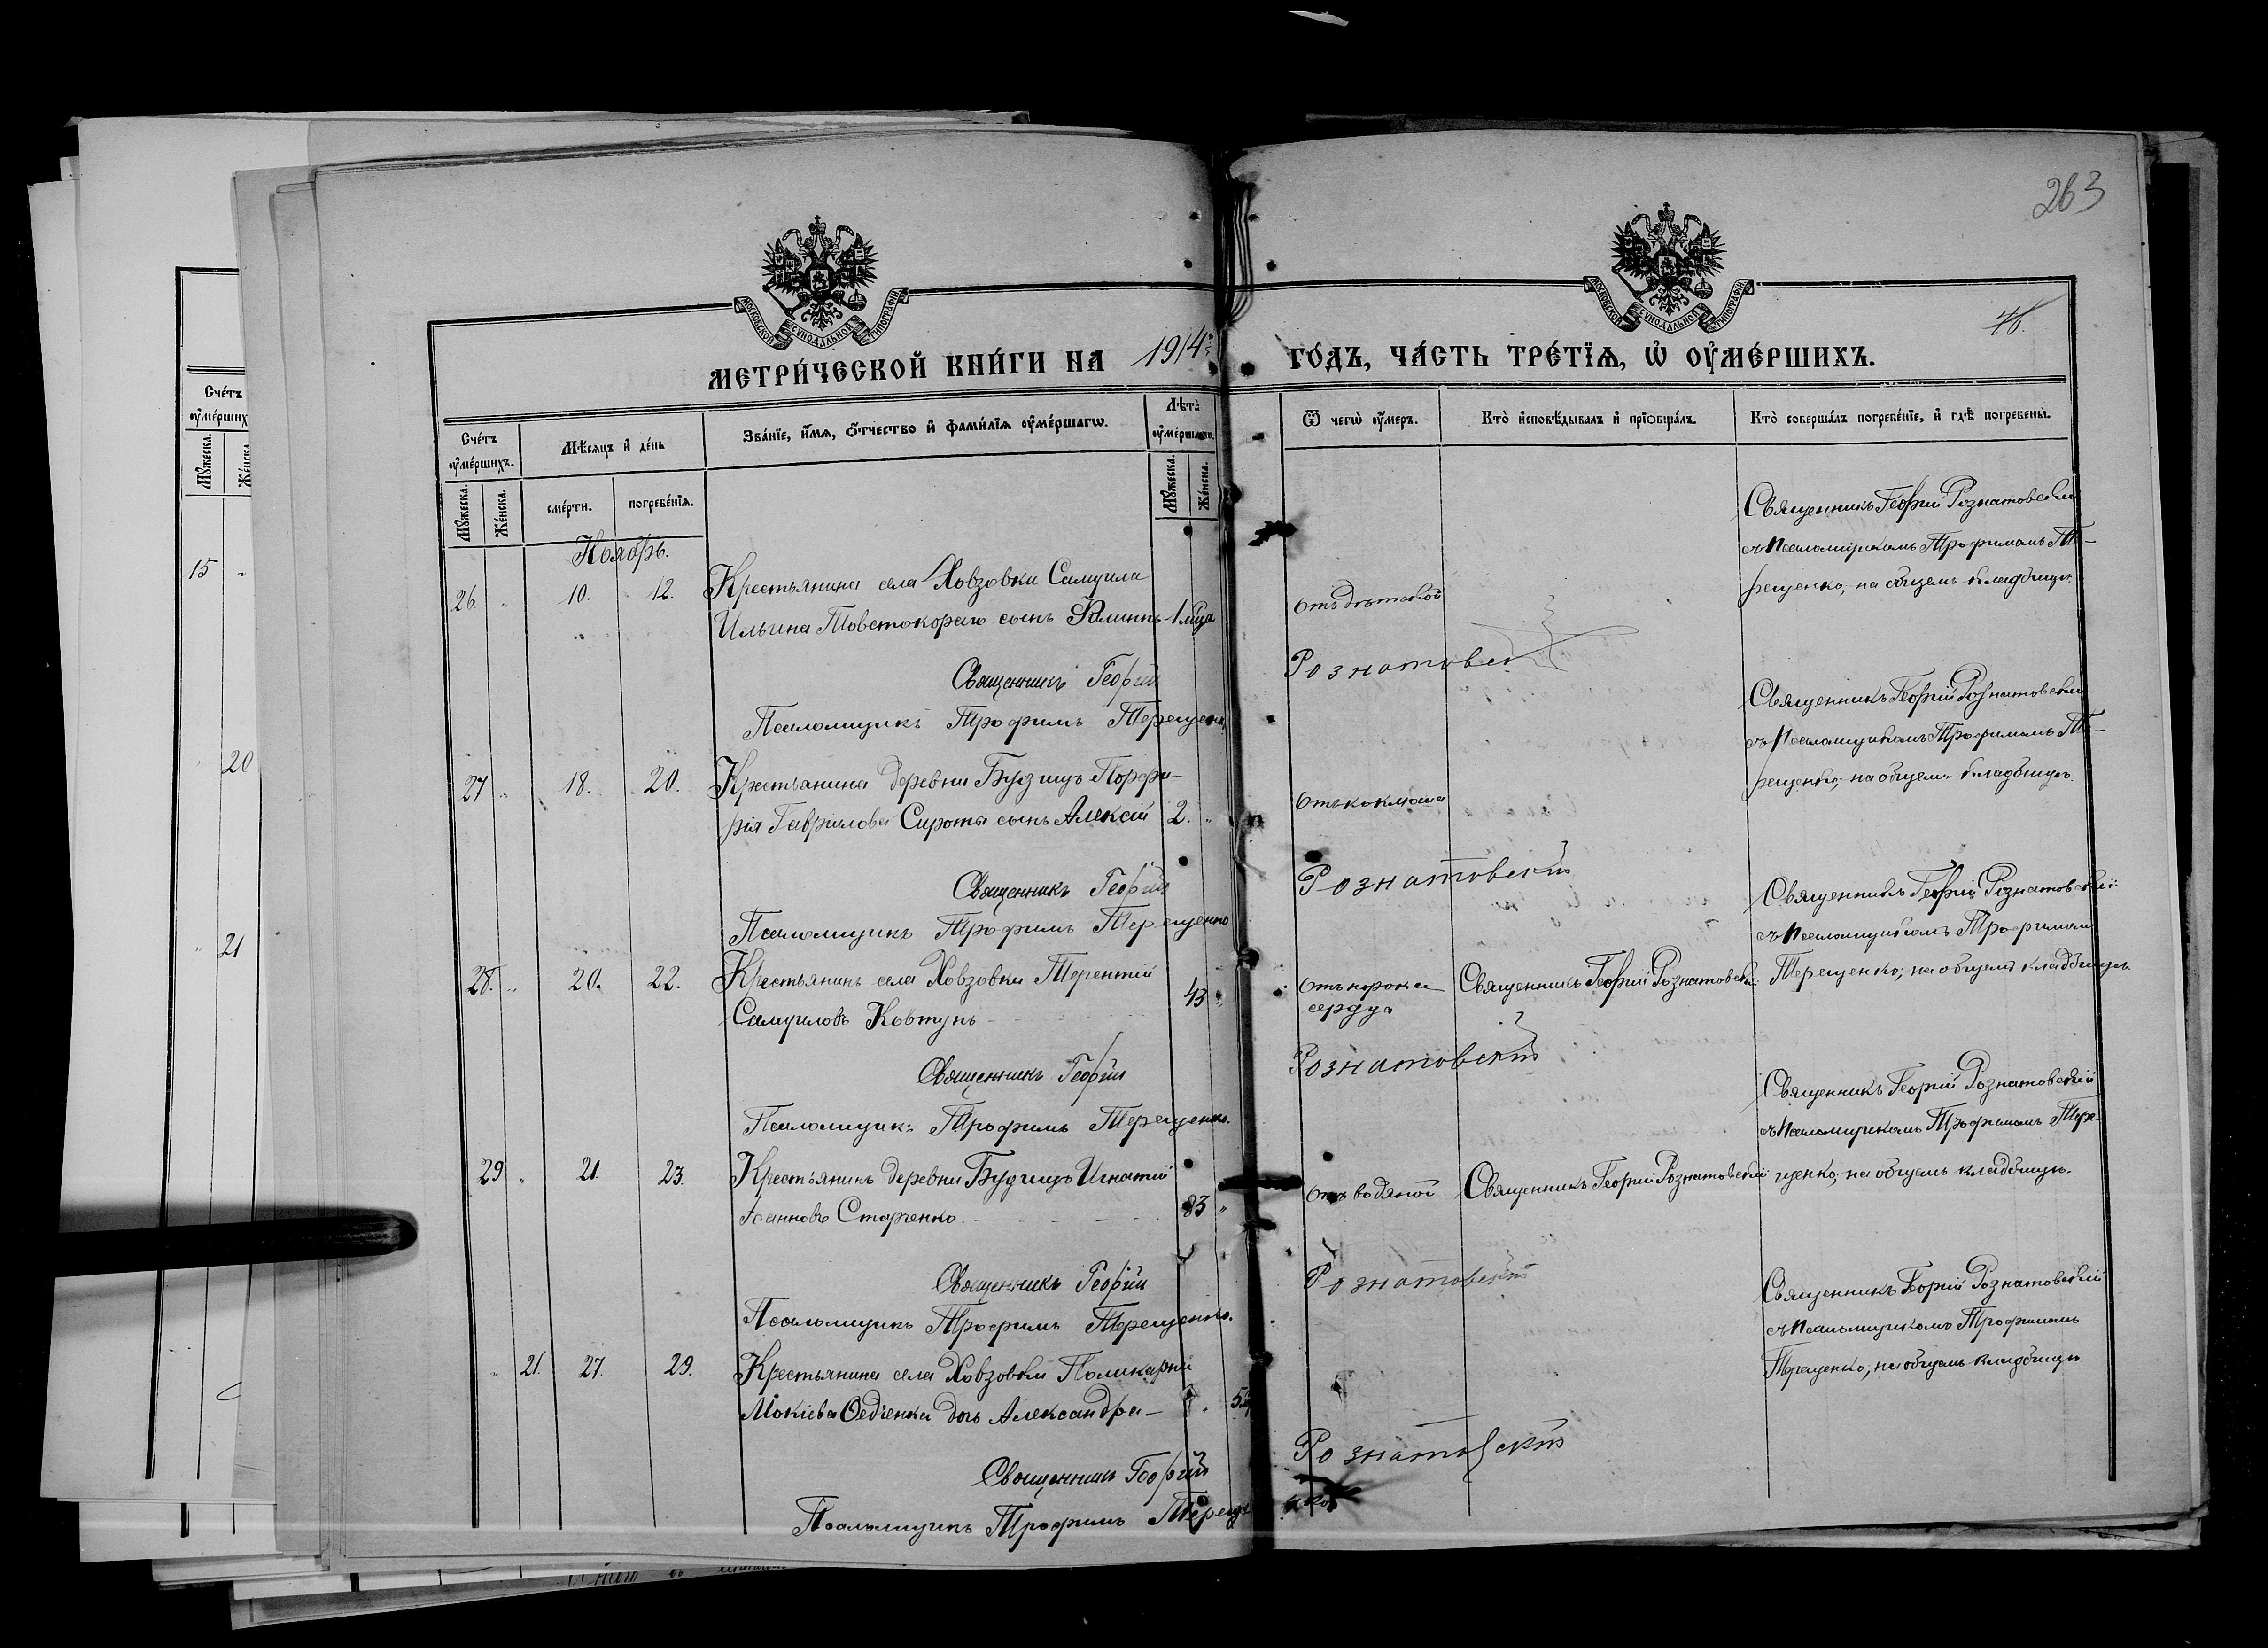 263
76.
МЕТРИ́ЧЕСКОЙ КНИ́ГИ НА 1914й ГО́ДЪ, ЧА́СТЬ ТРЕ́ТЇѦ, Ѡ҆ ОУ҆МЕ́РШИХЪ.
Сче́тъ оу҆ме́ршихъ.
Мꙋ́жеска.
Же́нска.
Мѣ́сѧцъ и҆ де́нь
сме́рти.
погребе́нїѧ.
Зва́нїе, и҆́мѧ, ѻ҆́тчество и҆ фами́лїѧ оу҆ме́ршагѡ.
Лѣ́та оу҆ме́ршагѡ.
Мꙋ́жеска.
Же́нска.
Ѿ чегѡ̀ оу҆́меръ.
Кто̀ и҆сповѣ́дывалъ и҆ прїѻбща́лъ.
Кто̀ соверша́лъ погребе́нїе, и҆ гдѣ̀ погребены̀.
Ноябрь.
26. " 10. 12. Крестьянина села Ховзовки Самуила
Ильина Товстокораго сынъ Филиппъ 1 м̃ца
отъ дѣтской
Священникъ Георгій Рознатовскій
съ Псаломщикомъ Трофимомъ Те-
рещенко, на общемъ кладбищѣ.
Священникъ Георгій Рознатовскій
Псаломщикъ Трофимъ Терещенко
27 " 18. 20. Крестьянина деревни Будищъ Порфи-
рія Гаврілова Сироты сынъ Алексій 2. "
отъ коклюша
Священникъ Георгій Рознатовскій
съ Псаломщикомъ Трофимомъ Те-
рещенко, на общемъ кладбищѣ.
Священникъ Георгій Рознатовскій
Псаломщикъ Трофимъ Терещенко
28. " 20. 22. Крестьянинъ села Ховзовки Терентій
Самуиловъ Ковтунъ 43 "
отъ порока
сердца
Священникъ Георгій Рознатовскій
Священникъ Георгій Рознатовскій
съ Псаломщикомъ Трофимомъ
Терещенко, на общемъ кладбищѣ
Священникъ Георгій Рознатовскій
Псаломщикъ Трофимъ Терещенко.
29 " 21. 23. Крестьянинъ деревни Будищъ Игнатій
Іоанновъ Старченко 83 "
отъ водяной
Священникъ Георгій Рознатовскій
Священникъ Георгій Рознатовскій
съ Псаломщикомъ Трофимомъ Тере-
щенко, на общемъ кладбищѣ.
Священникъ Георгій Рознатовскій
Псаломщикъ Трофимъ Терещенко.
" 21. 27. 29. Крестьянина села Ховзовки Поликарпа
Мокіева дочь Александра
Священникъ Георгій Рознатовскій
съ Псаломщикомъ Трофимомъ
Терещенко, на общемъ кладбищѣ
Священникъ Георгій Рознатовскій
Псаломщикъ Трофимъ Терещенко
Сче́тъ
оу҆ме́рших
Мꙋ́жеска.
Же́нска
15 "
20
" 21